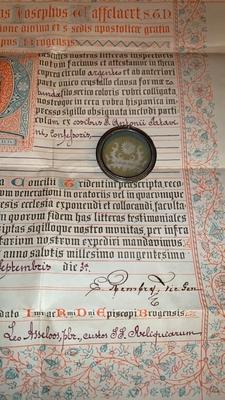 Josephus Waffelaert S.T.D.
ione divina et s. sedis apostolicæ gratia
pus Brugensis
nostras litteras inspecturis
um facimus et attestamur in theca
cuprea circulo argenteo et ab anteriori
parte unico crustello clausa formæ ro-
tunda filo serico coloris rubri colligata
nostroque in cera rubra hispanica im-
presso sigillo obsignata inviolui parti-
culum ex ossibus S. Antonii Patavi
ni, Confessoris,
a Concilii Tridentini præscripta reco
rum venerationi in oratoriis vel in quocumque
sis ecclesia exponendi et collocandi faculta
In quorum fidem has litteras testimoniales
riptas sigilloque nostro munitas, per infra
tarium nostrum expediri mandavimus.
anno salutis millesimo nongentesimo
Septembris die 3ª
E. Rembry, Vic. Gen.
dato Illmi ac Rmi Dni Episcopi Brugensis
Leo Asseloos, pbr., custos SS. Reliquiarum